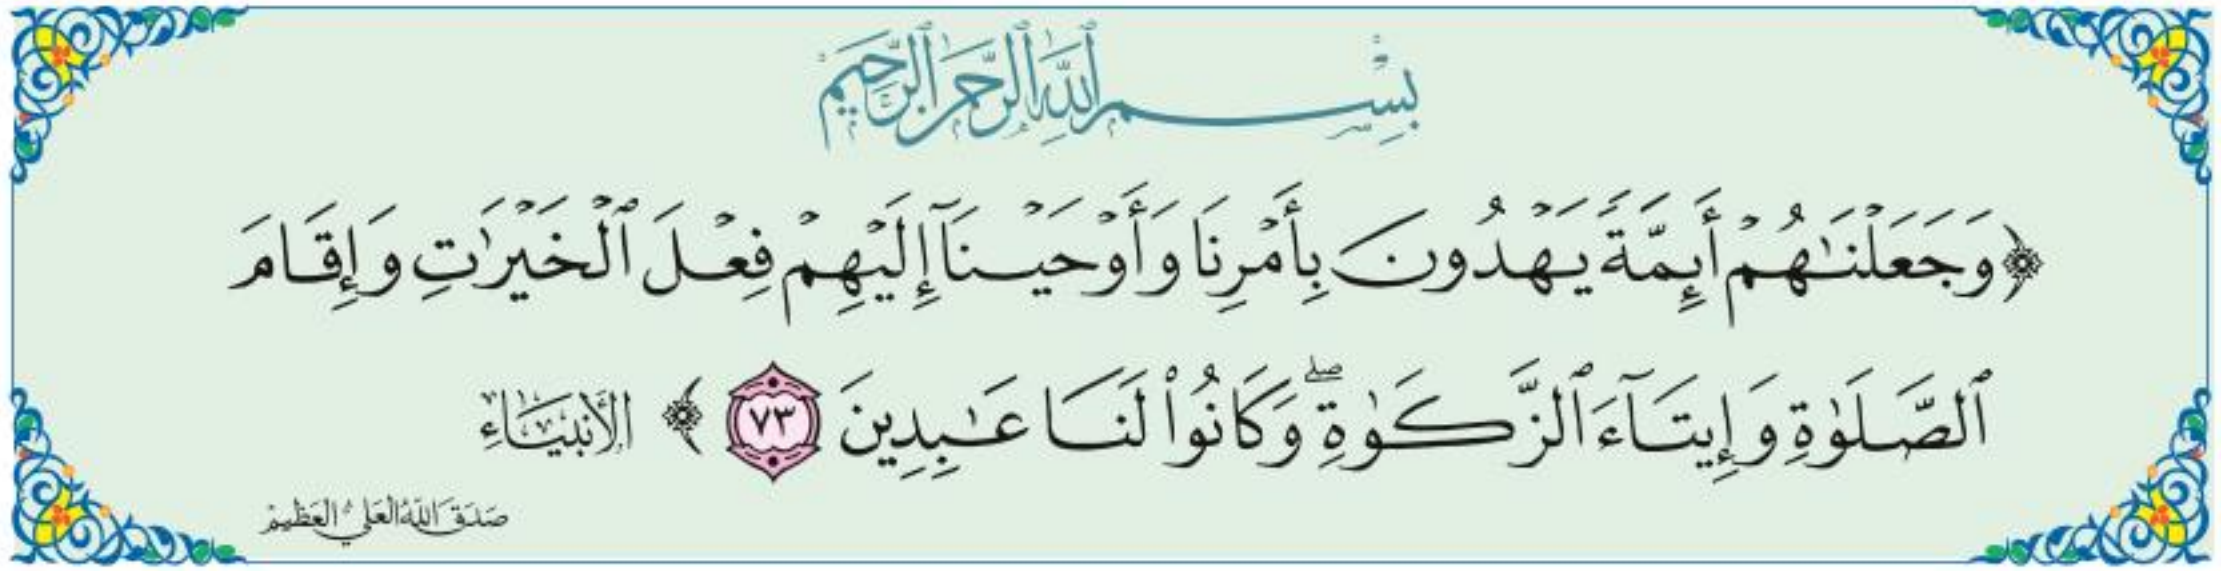 بِسْمِ ٱللَّهِ ٱلرَّحْمَٰنِ ٱلرَّحِيمِ
﴿وَجَعَلْنَٰهُمْ أَئِمَّةً يَهْدُونَ بِأَمْرِنَا وَأَوْحَيْنَآ إِلَيْهِمْ فِعْلَ ٱلْخَيْرَٰتِ وَإِقَامَ
ٱلصَّلَوٰةِ وَإِيتَآءَ ٱلزَّكَوٰةِۖ وَكَانُوا۟ لَنَا عَٰبِدِينَ ٧٣﴾ الأَنْبِيَاءِ
صَدَقَ اللَّهُ العَلِيُّ العَظِيمُ